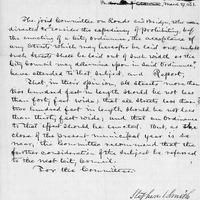 March 19, 1883.
The Joint Committee on Roads and Bridges, who were
directed to consider the expediency of prohibiting by
an ordinance of the City Council the acceptance of
any street which may hereafter be laid out, unless
such street shall be laid out of such width as the
City Council may determine upon in said Ordinance,
have attended to that subject, and Report,
That, in their opinion, all streets more than
two hundred feet in length should be not less
than forty feet wide; that all streets less than
two hundred feet in length should be not less
than thirty feet wide; and that an Ordinance
to that effect should be enacted. But, as the
close of the present municipal year is so
near, the Committee recommend that the
further consideration of the subject be referred
to the next City Council.
For the Committee,
Stephen